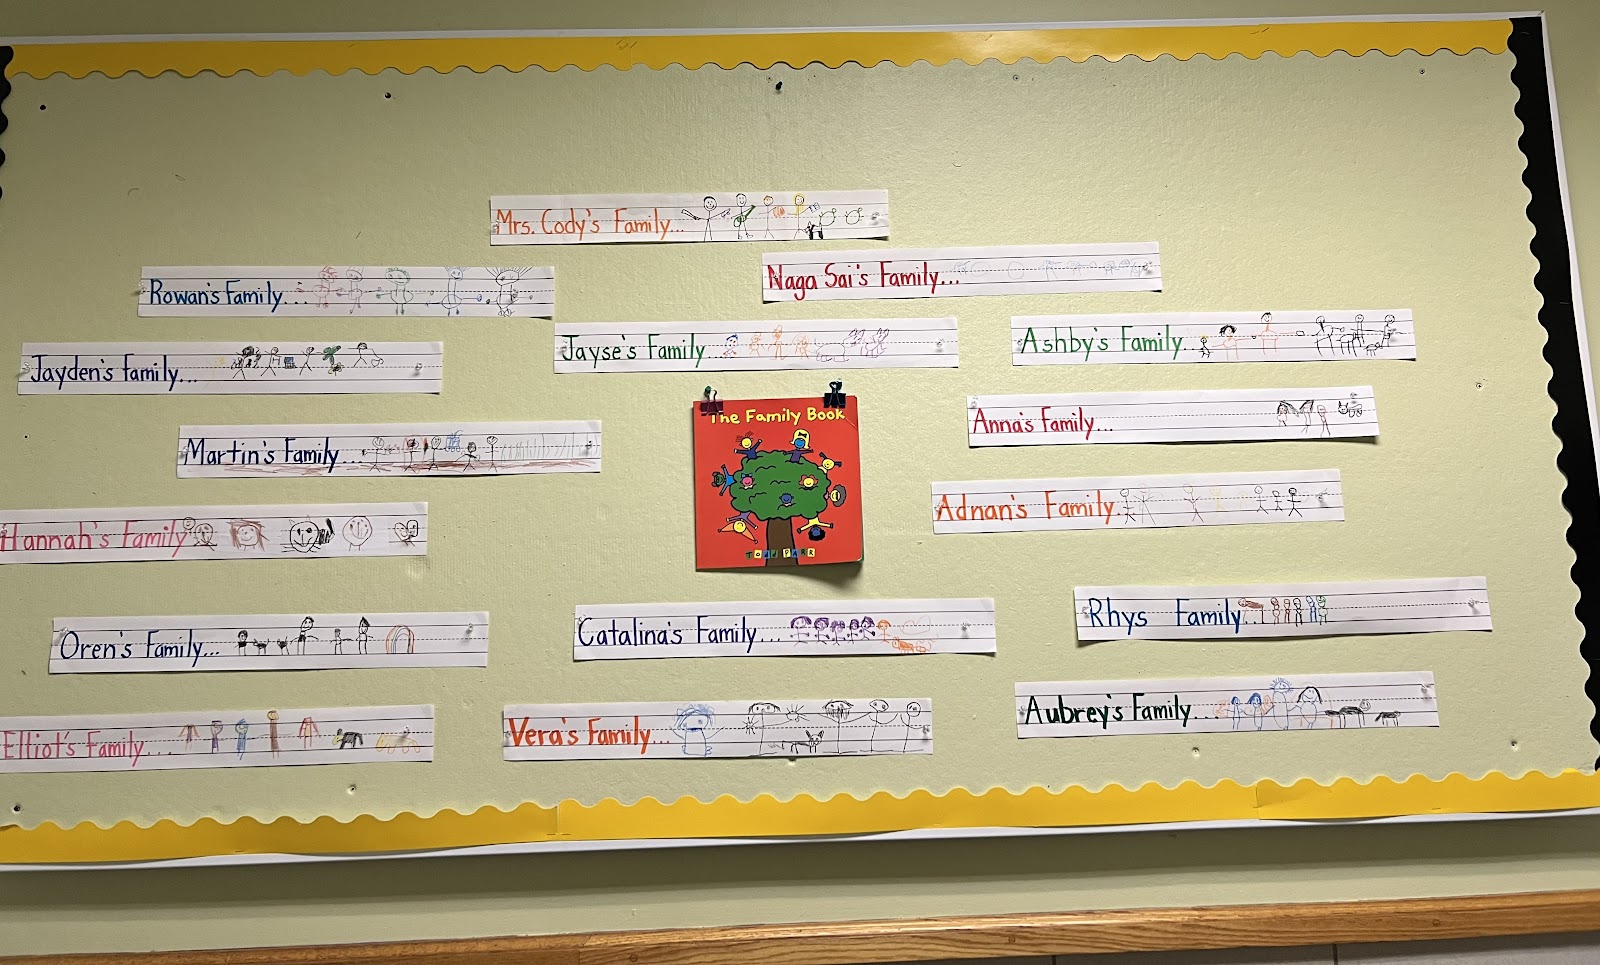 Mrs. Cody's Family...
Naga Sai's Family...
Rowan's Family...
Jayse's Family...
Ashby's Family...
Jayden's Family...
Anna's Family...
The Family Book
Todd Parr
Martin's Family...
Adnan's Family...
Hannah's Family
Oren's Family...
Catalina's Family...
Rhys Family...
Elliot's Family....
Vera's Family...
Aubrey's Family...